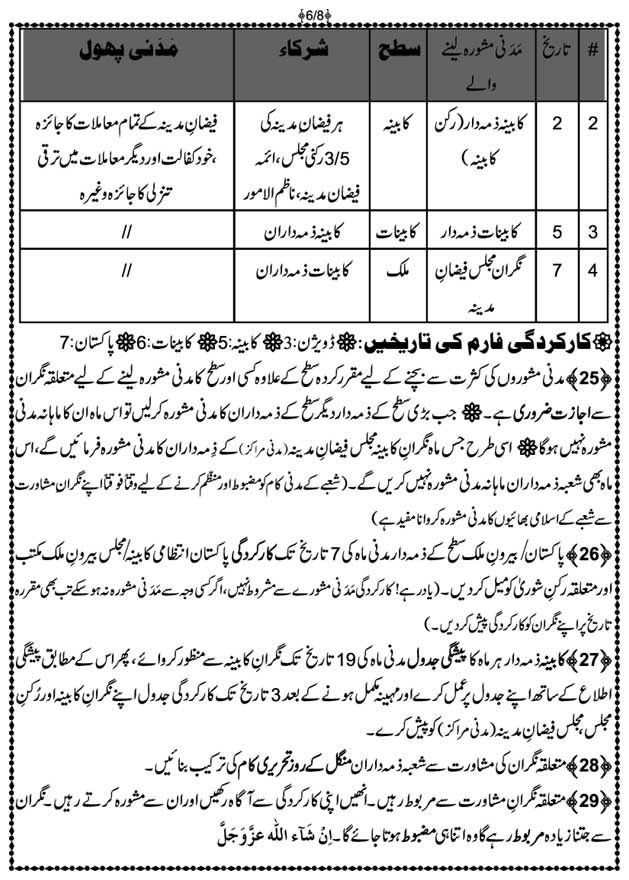 ﴿6/8﴾
# تاریخ مَدَنی مشورہ لینے والے سطح شرکاء مَدَنی پھول
2 2 کابینہ ذمہ دار (رکن کابینہ) کابینہ ہر فیضانِ مدینہ کی 3/5 رکنی مجلس، ائمہ فیضانِ مدینہ، ناظم الامور فیضانِ مدینہ کے تمام معاملات کا جائزہ، خود کفالت اور دیگر معاملات میں ترقی تنزلی کا جائزہ وغیرہ
3 5 کابینات ذمہ دار کابینات کابینہ ذمہ داران //
4 7 نگران مجلس فیضانِ مدینہ ملک کابینات ذمہ داران //
کارکردگی فارم کی تاریخیں: ڈویژن:3 کابینہ:5 کابینات:6 پاکستان:7
﴿25﴾ مدنی مشوروں کی کثرت سے بچنے کے لیے مقرر کردہ سطح کے علاوہ کسی اور سطح کا مدنی مشورہ لینے کے لیے متعلقہ نگران
سے اجازت ضروری ہے۔ جب بڑی سطح کے ذمہ دار دیگر سطح کے ذمہ داران کا مدنی مشورہ کر لیں تو اس ماہ ان کا ماہانہ مدنی
مشورہ نہیں ہوگا اسی طرح جس ماہ نگرانِ کابینہ مجلس فیضانِ مدینہ (مدنی مراکز) کے ذِمہ داران کا مدنی مشورہ فرمائیں گے، اس
ماہ بھی شعبہ ذمہ داران ماہانہ مدنی مشورہ نہیں کریں گے۔ (شعبے کے مدنی کام کو مضبوط اور منظّم کرنے کے لیے وقتاً فوقتاً اپنے نگران مشاورت
سے شعبے کے اسلامی بھائیوں کا مدنی مشورہ کروانا مفید ہے)
﴿26﴾ پاکستان/ بیرونِ ملک سطح کے ذمہ دار مدنی ماہ کی 7 تاریخ تک کارکردگی پاکستان انتظامی کابینہ/ مجلس بیرونِ ملک مکتب
اور متعلقہ رکنِ شوریٰ کو میل کردیں۔ (یاد رہے! کارکردگی مَدَنی مشورے سے مشروط نہیں، اگر کسی وجہ سے مَدَنی مشورہ نہ ہو سکے تب بھی مقررہ
تاریخ پر اپنے نگران کو کارکردگی پیش کردیں۔)
﴿27﴾ کابینہ ذمہ دار ہر ماہ کا پیشگی جدول مدنی ماہ کی 19 تاریخ تک نگرانِ کابینہ سے منظور کروائے، پھر اس کے مطابق پیشگی
اطلاع کے ساتھ اپنے جدول پر عمل کرے اور مہینہ مکمل ہونے کے بعد 3 تاریخ تک کارکردگی جدول اپنے نگرانِ کابینہ اور رُکنِ
مجلس، مجلس فیضانِ مدینہ (مدنی مراکز) کو پیش کرے۔
﴿28﴾ متعلقہ نگران کی مشاورت سے شعبہ ذمہ داران منگل کے روز تحریری کام کی ترکیب بنائیں۔
﴿29﴾ متعلقہ نگرانِ مشاورت سے مربوط رہیں۔ انھیں اپنی کارکردگی سے آگاہ رکھیں اور ان سے مشورہ کرتے رہیں۔ نگران
سے جتنا زیادہ مربوط رہے گا وہ اتنا ہی مضبوط ہوتا جائے گا۔ اِنْ شَآءَ اللّٰه عزَّوَجَلَّ